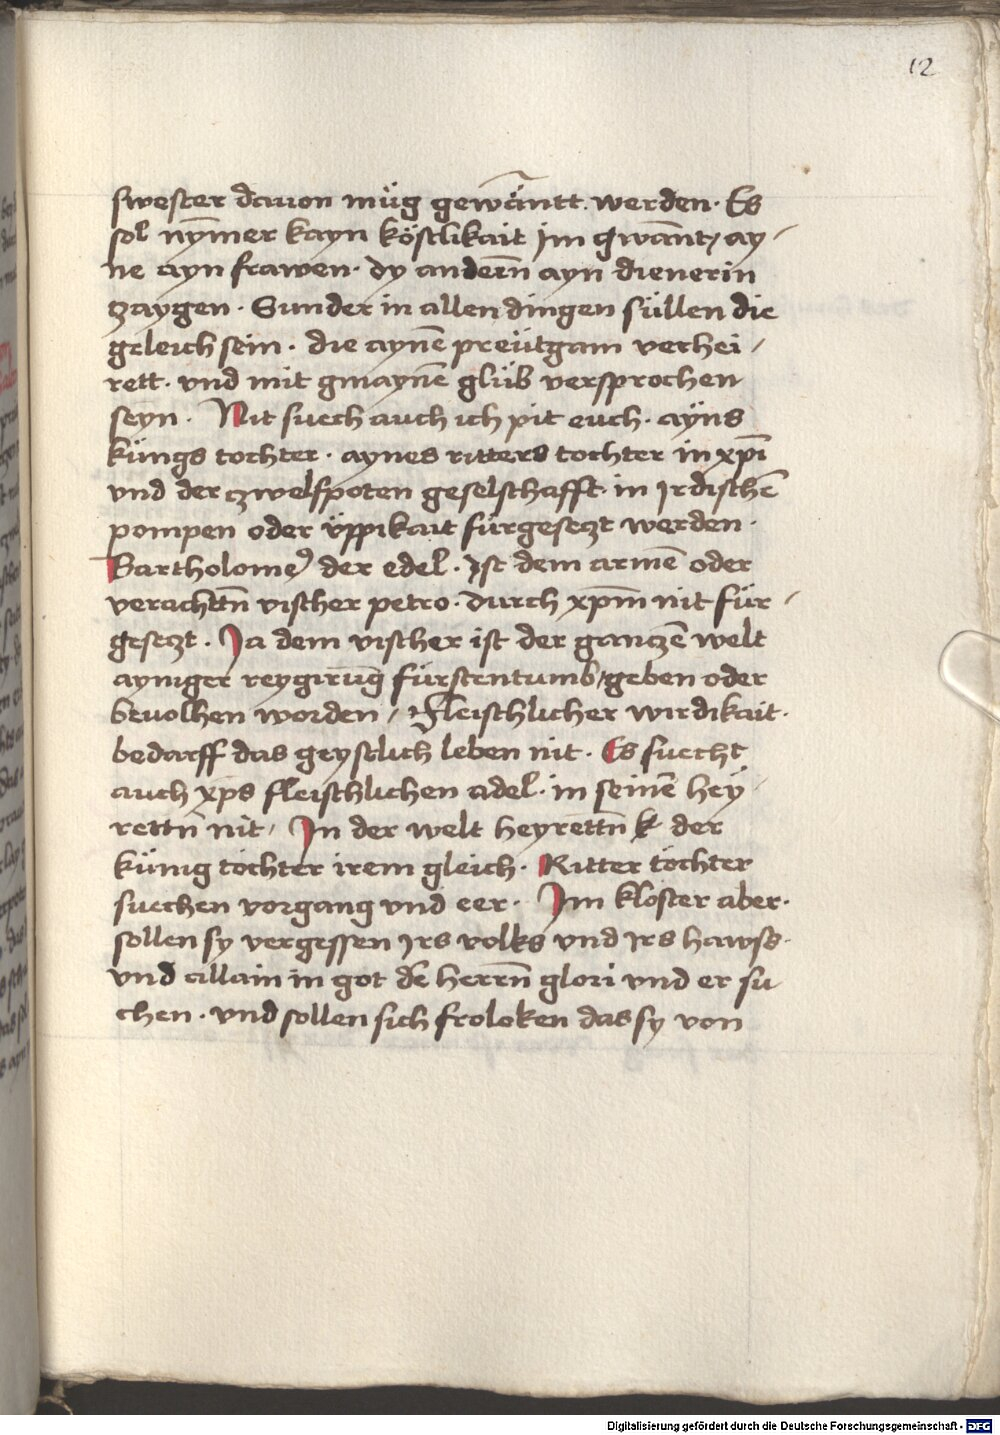 12
swester dauon müg gewāntt werden · Es
sol nym̄er kayn köstlikait jm gwant / ay /
ne ayn frawen · dy anderñ ayn dienerin
zaygen · Sunder in allen dingen süllen die
geleich sein · die aynē preütgam verhei /
rett · vnd mit gmaynē glüb versprochen
seyn · Nit suech auch ich pit euch · ayns
küngs tochter · aynes ritters tochter in xp̄i
vnd der czwelfpoten geselschafft · in jrdischē
pompen oder üppikait fürgeseczt werden ·
Bartholome der edel · Ist dem armē oder
verachtñ vischer petro · durch xp̄m nit für /
geseczt · Ja dem vischer ist der ganczē welt
ayniger reygirūg fürstentumb / geben oder
beuolhen worden / Fleischlicher wirdikait ·
bedarff das geystlich leben nit · Es suecht
auch xp̄s fleischlichen adel · in seinē hey /
rettñ nit / In der welt heyrettñ der
künig töchter irem gleich · Ritter töchter
suechen vorgang vnd eer · Im kloster aber ·
sollen sy vergessen jrs volks vnd jrs hawss ·
vnd allain in got dē herrñ glori vnd er su
chen · vnd sollen sich froloken das sy von
Digitalisierung gefördert durch die Deutsche Forschungsgemeinschaft - DFG